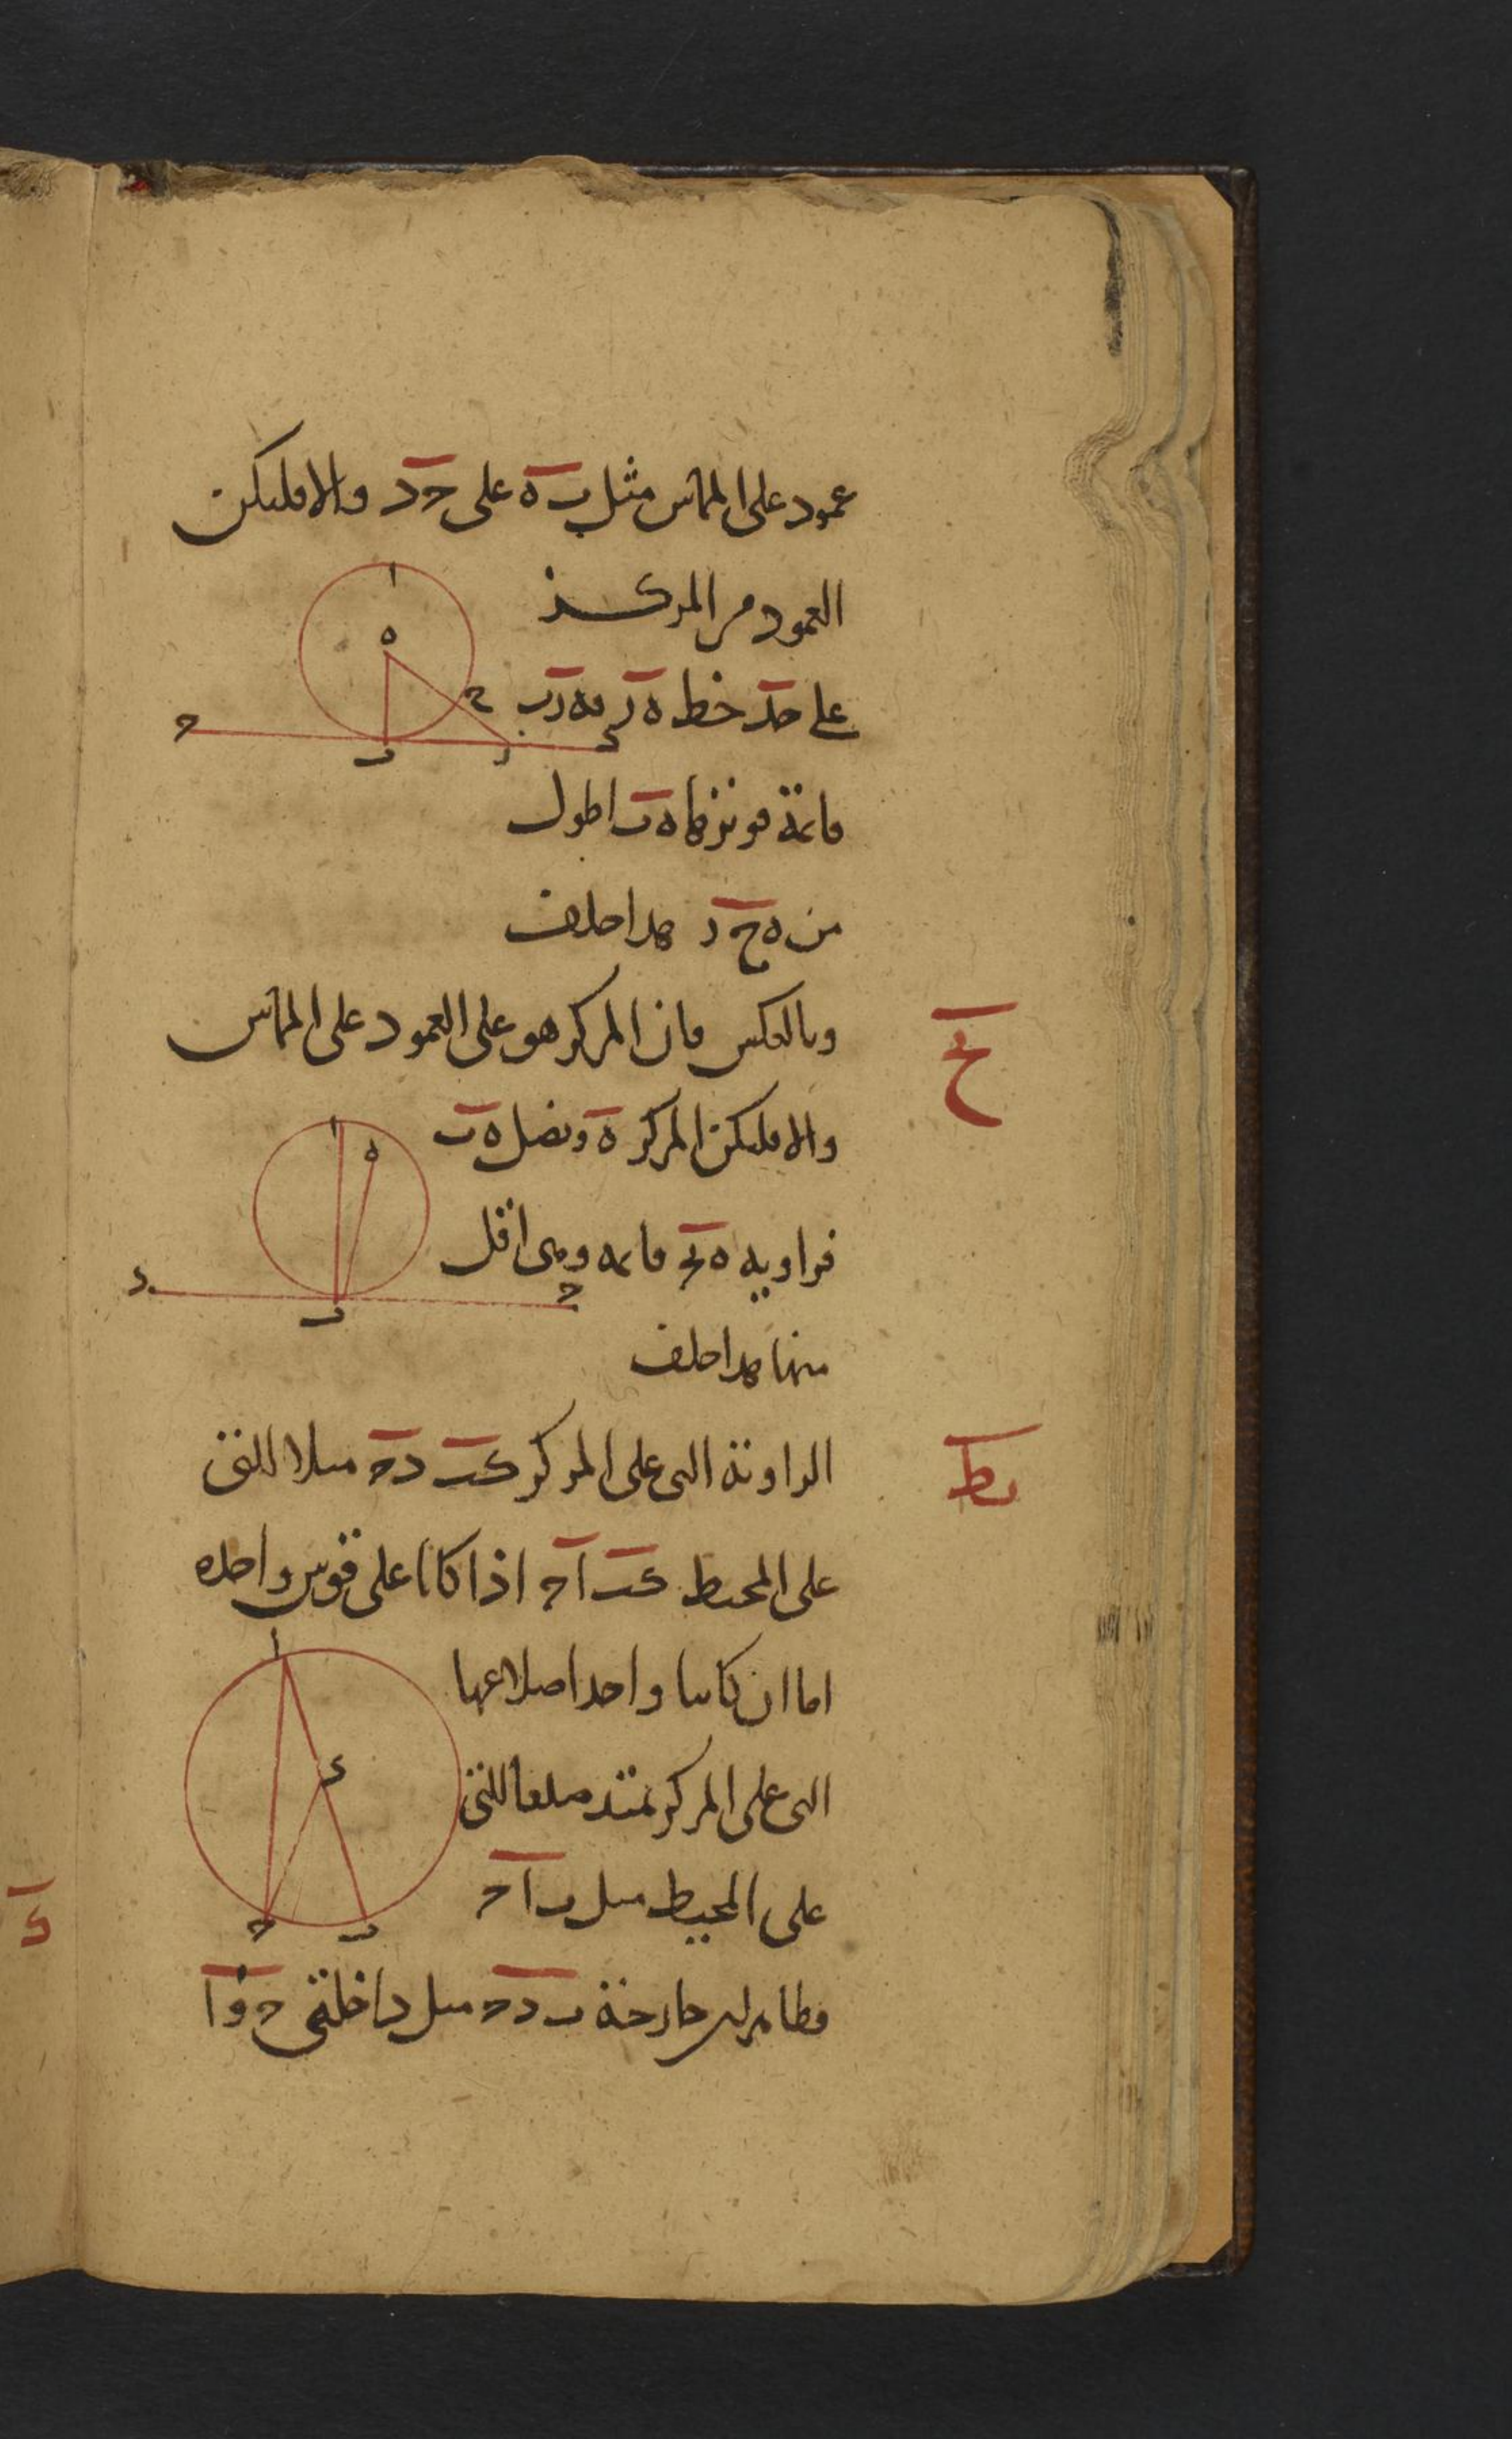 عمود على المماس مثل ب ه على ح د والا فليكن
العمود من المركز
على حد خط ه ر فه ر ب
قائمة فوترها ه ب اطول
من ه ح ر هذا خلف
يح
وبالعكس فان المركز هو على العمود على المماس
والا فليكن المركز ه ونصل ه ب
فزاوية ه ب ح قائمة وهى اقل
منها هذا خلف
يط
الزاوية التى على المركز كب د ح مثلا للتى
على المحيط كب ا ح اذا كانا على قوس واحدة
اما ان كانتا واحد اضلاعها
التى على المركز تمتد ضلعا للتى
على المحيط مثل ب ا ح
فظاهر لان خارجة ب د ح مثل داخلتى ح و ا
ا
ه
ح
ح
ب
ر
د
ا
ه
د
ب
ح
ا
د
ح
ب
ك